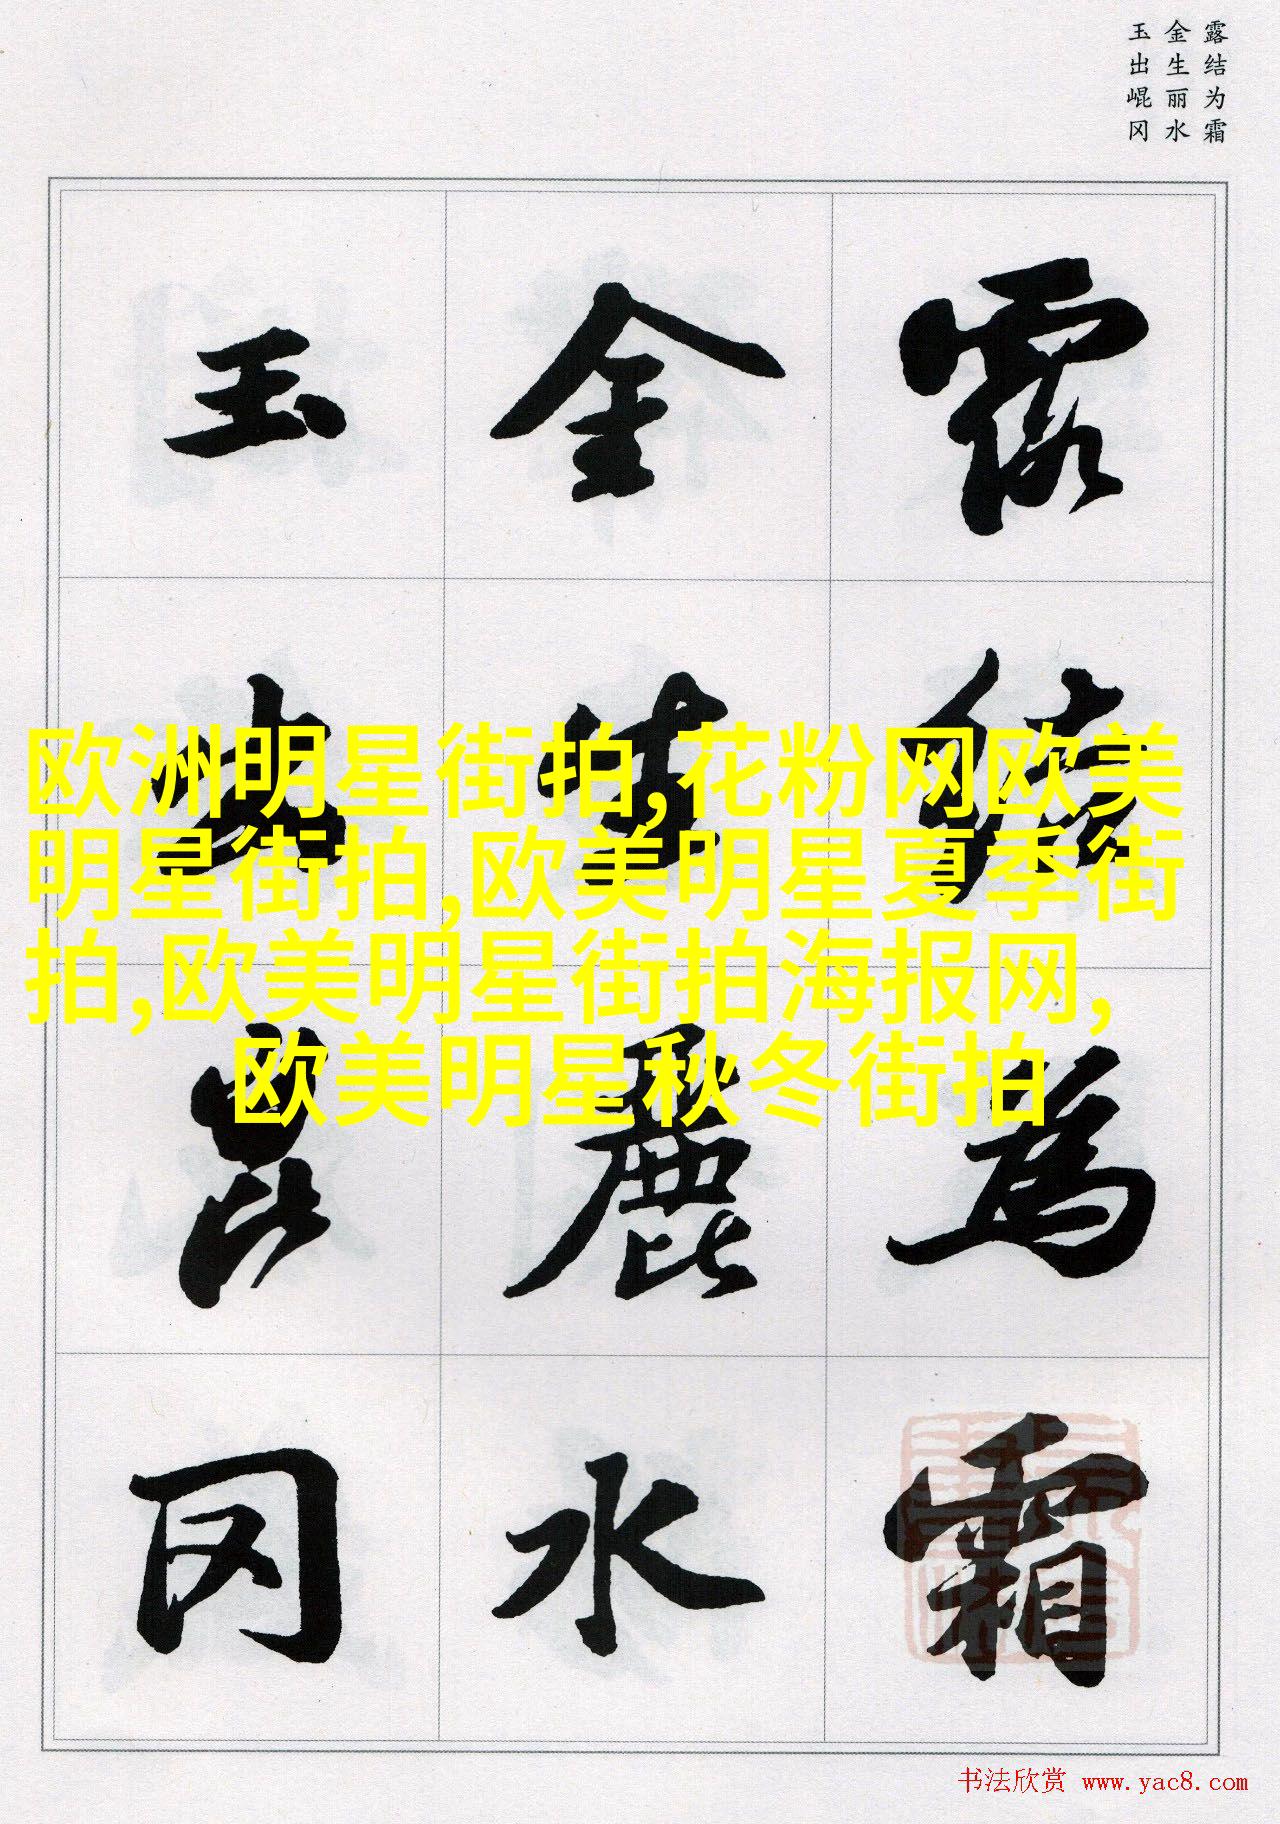 露结为霜
金生丽水
玉出崐冈
露结為霜
金生麗水
玉出崑冈
欧洲明星街拍,花粉网欧美
明星街拍,欧美明星夏季街
拍,欧美明星街拍海报网,
欧美明星秋冬街拍
书法欣赏 www.yac8.com